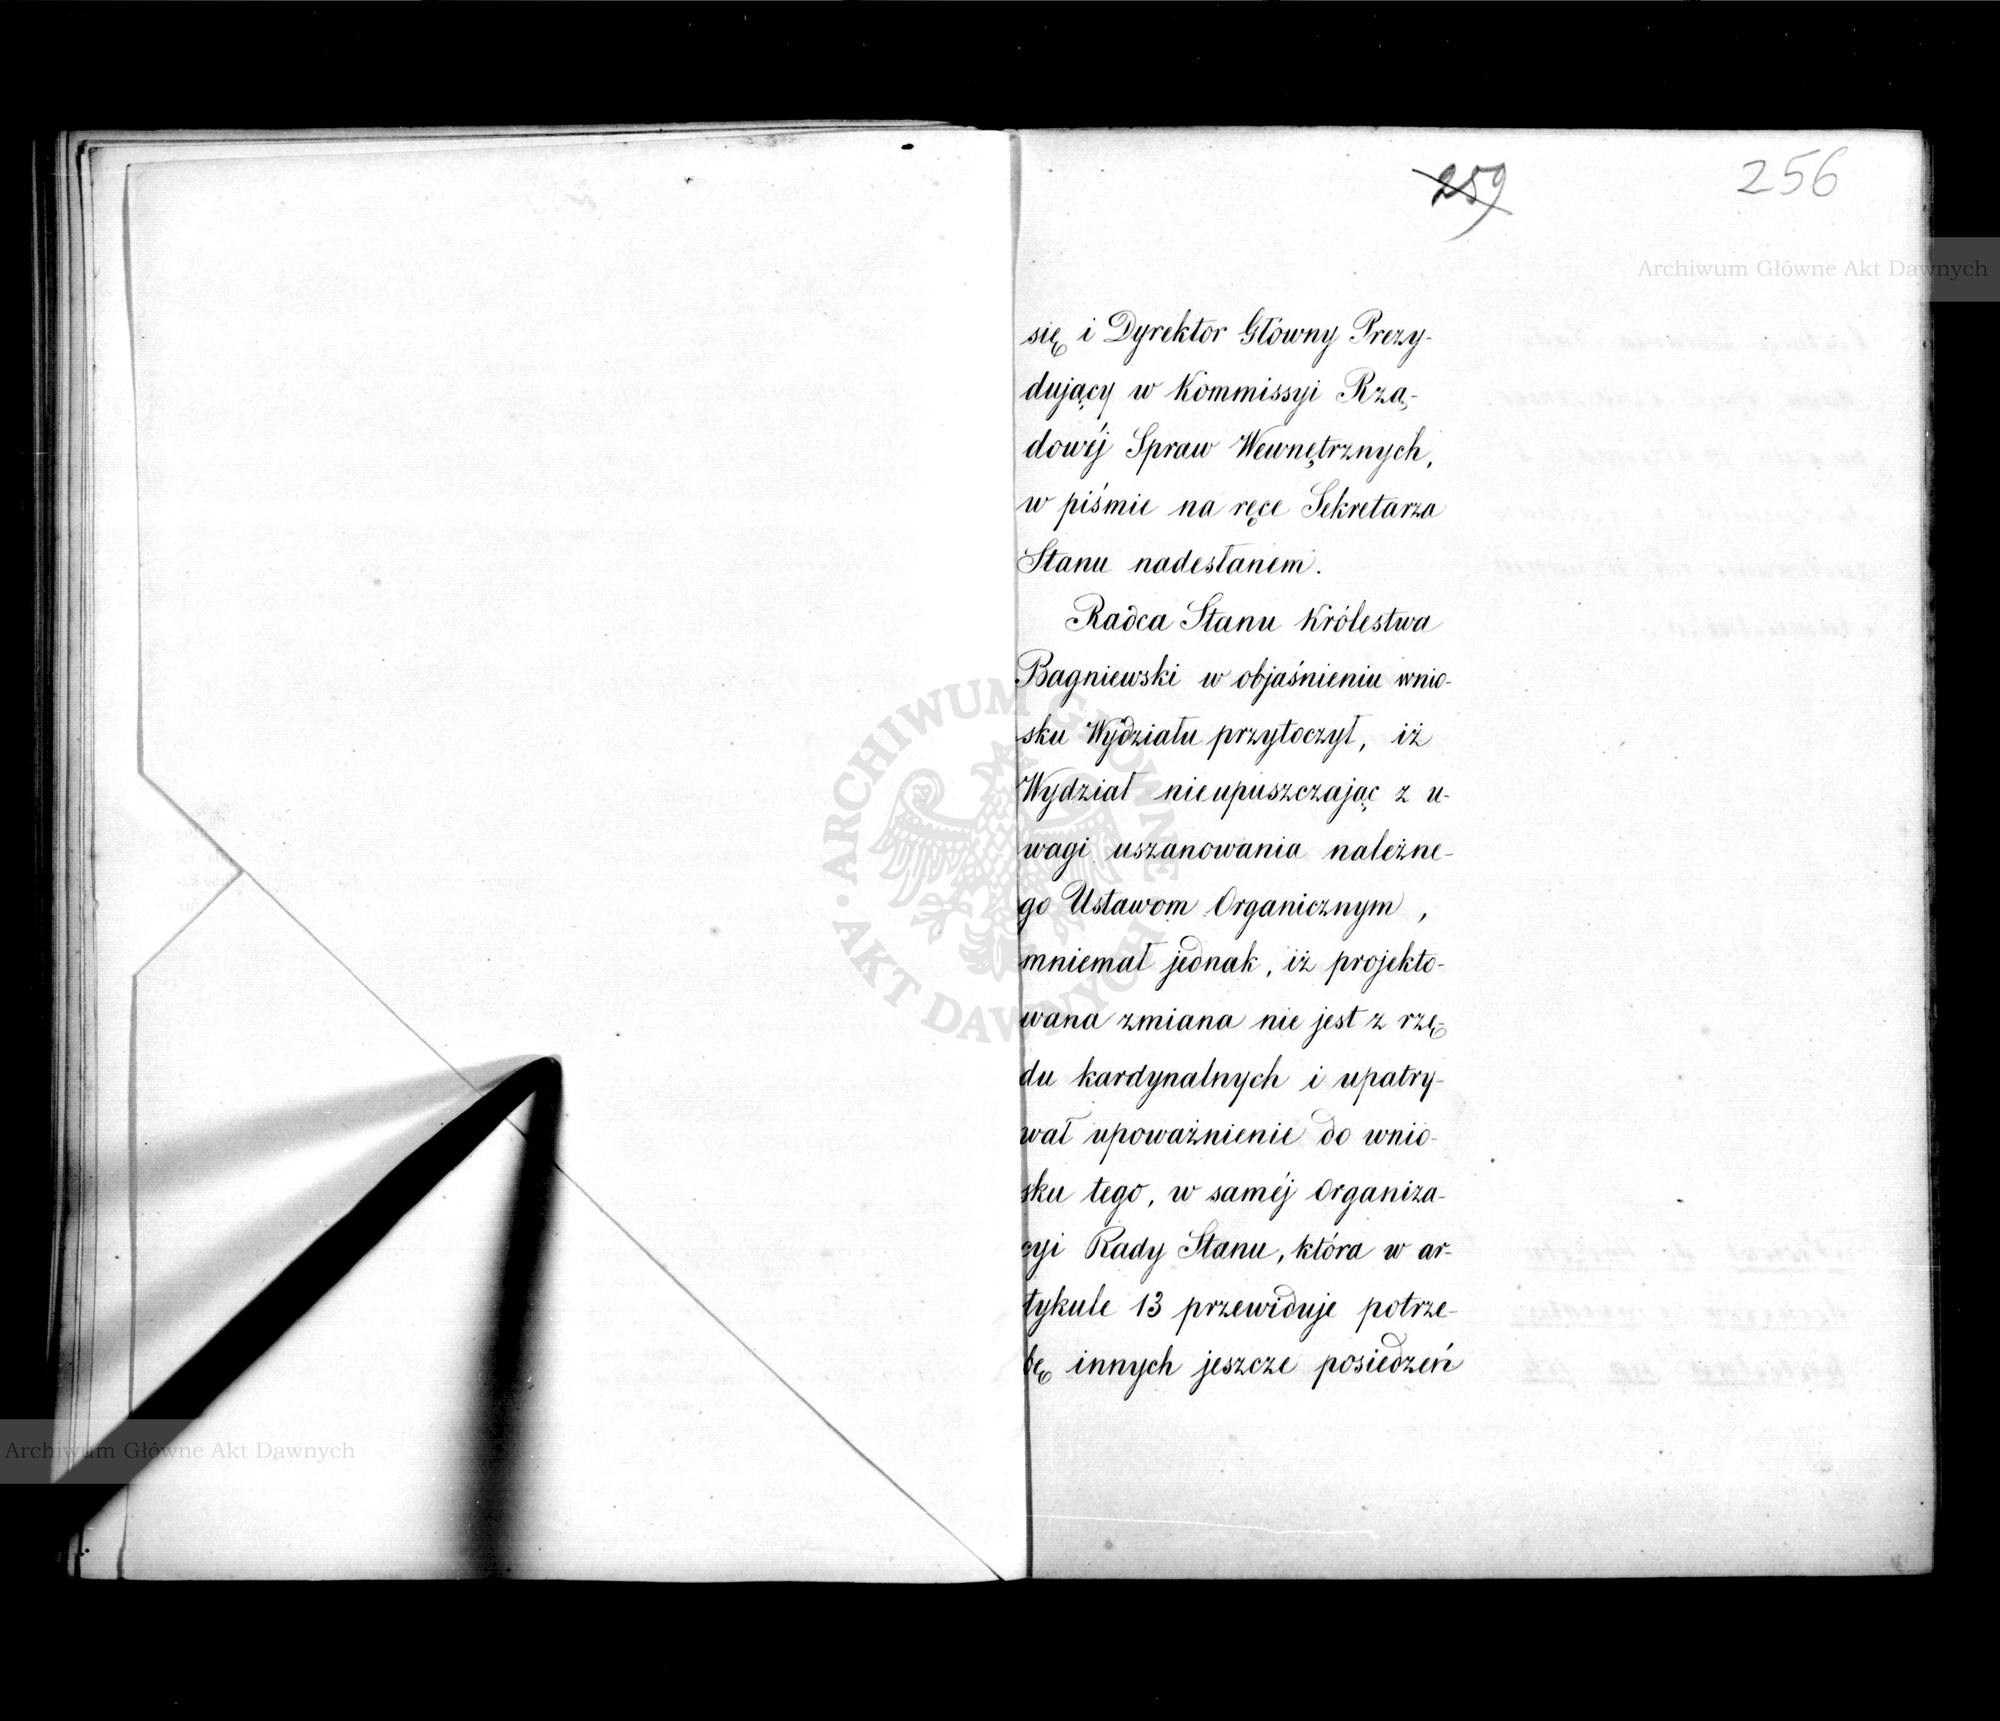 259
256
Archiwum Główne Akt Dawnych
się i Dyrektor Główny Prezy-
dujący w Kommissyi Rzą-
dowéj Spraw Wewnętrznych,
w piśmie na ręce Sekretarza
Stanu nadesłanem.
Radca Stanu Królestwa
Bagniewski w objaśnieniu wnio-
sku Wydziału przytoczył, iż
Wydział nieupuszczając z u-
wagi uszanowania należne-
go Ustawom Organicznym,
mniemał jednak, iż projekto-
wana zmiana nie jest z rzę-
du kardynalnych i upatry-
wał upoważnienie do wnio-
sku tego, w saméj Organiza-
cyi Rady Stanu, która w ar-
tykule 13 przewiduje potrze-
bę innych jeszcze posiedzeń
ARCHIWUM GŁÓWNE AKT DAWNYCH
Archiwum Główne Akt Dawnych